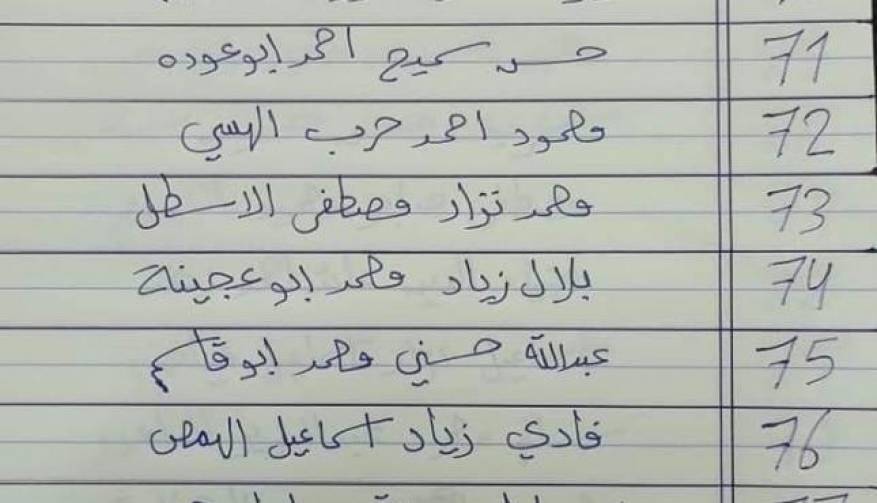 71 حسن سميح احمد ابو عوده
72 محمود احمد حرب الهسي
73 محمد نزار مصطفى الاسطل
74 بلال زياد محمد ابو عجينة
75 عبدالله حسني محمد ابو قاسم
76 فادي زياد اسماعيل الهمص